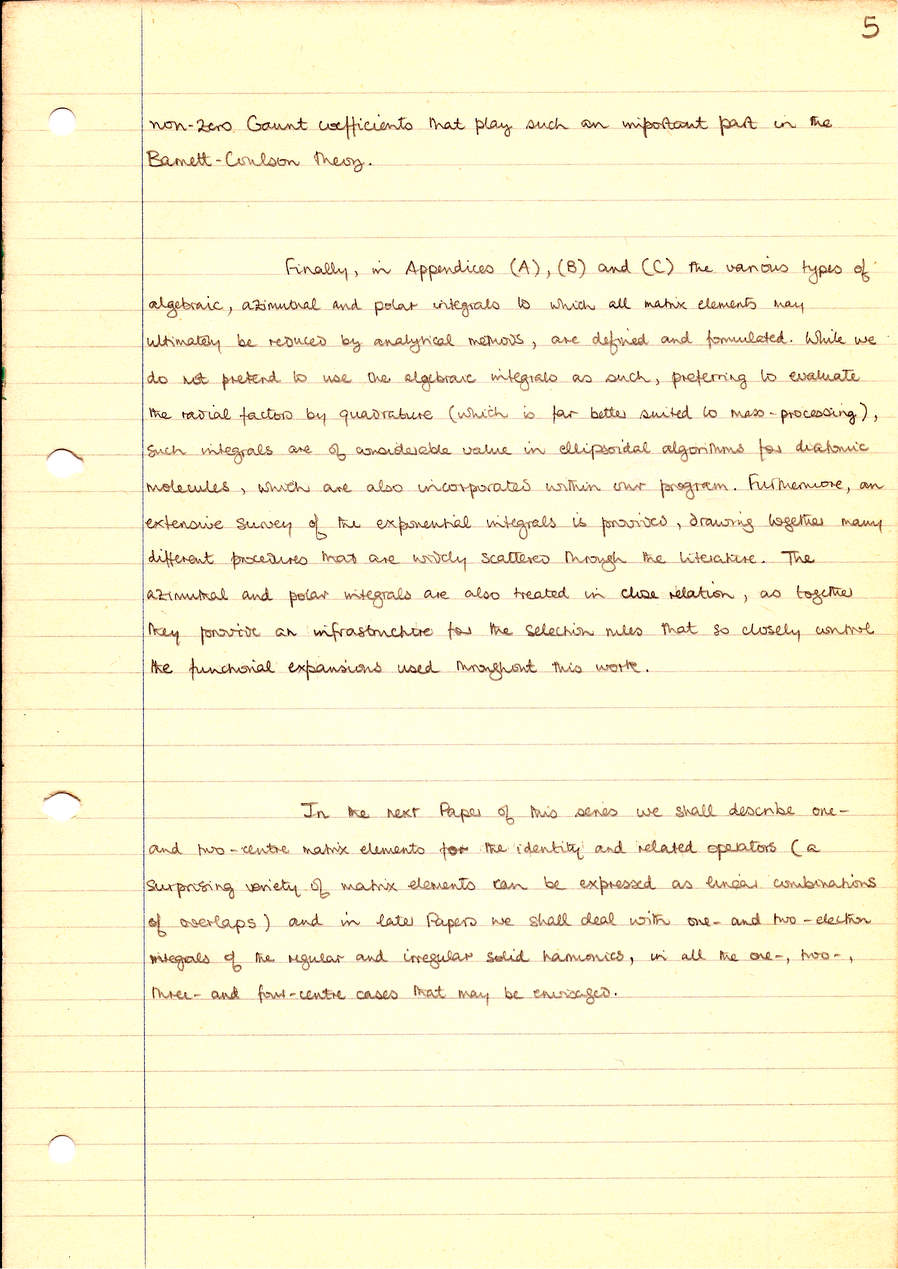 5
non-zero Gaunt coefficients that play such an important part in the
Barnett-Coulson theory.
Finally, in Appendices (A), (B) and (C) the various types of
algebraic, azimuthal and polar integrals to which all matrix elements may
ultimately be reduced by analytical methods, are defined and formulated. While we
do not pretend to use the algebraic integrals as such, preferring to evaluate
the radial factors by quadrature (which is far better suited to mass-processing),
such integrals are of considerable value in ellipsoidal algorithms for diatomic
molecules, which are also incorporated within our program. Furthermore, an
extensive survey of the exponential integrals is provided, drawing together many
different procedures that are widely scattered through the literature. The
azimuthal and polar integrals are also treated in close relation, as together
they provide an infrastructure for the selection rules that so closely control
the functional expansions used throughout this work.
In the next Paper of this series we shall describe one-
and two-centre matrix elements for the identity and related operators (a
surprising variety of matrix elements can be expressed as linear combinations
of overlaps) and in later Papers we shall deal with one- and two-electron
integrals of the regular and irregular solid harmonics, in all the one-, two-,
three- and four-centre cases that may be envisaged.